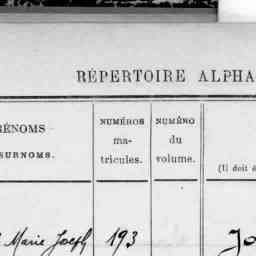 RÉPERTOIRE ALPHA
RÉNOMS
SURNOMS.
NUMÉROS
ma-
tricules.
NUMÉRO
du
volume.
(Il doit é
Marie Joseph 193 Jo